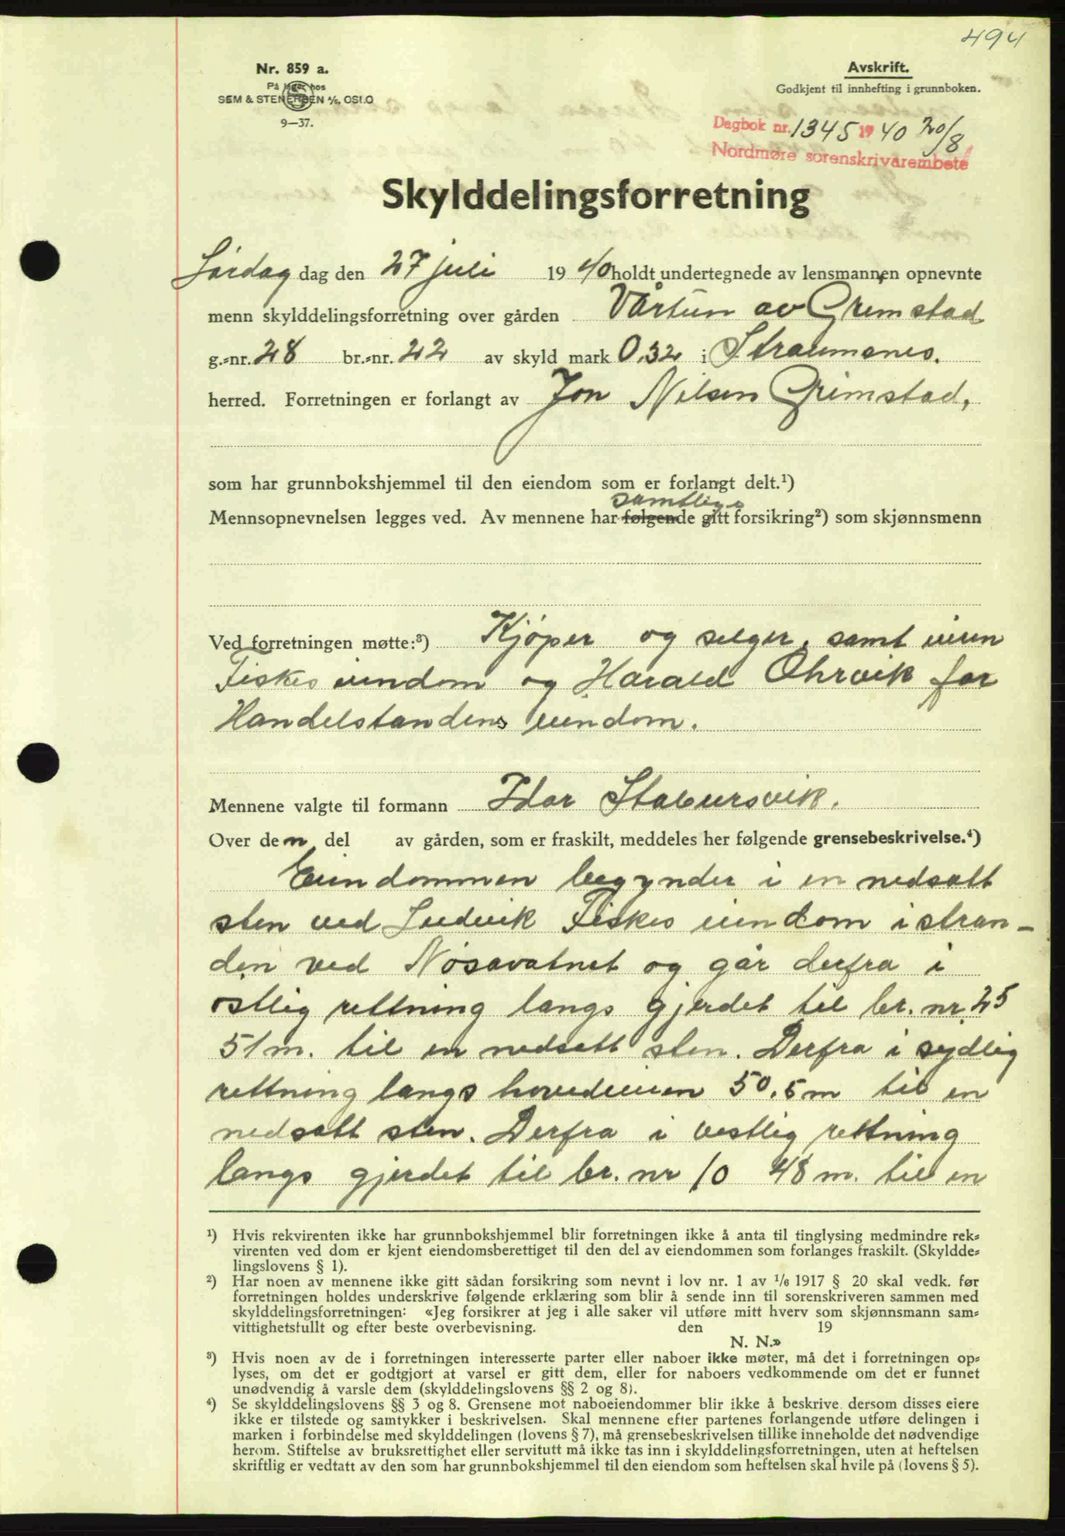 494
Nr. 859 a.
På lager hos
SEM & STENERSEN A/S, OSLO
9—37.
Avskrift.
Godkjent til innhefting i grunnboken.
Dagbok nr. 1345 1940 20/8
Nordmøre sorenskriverembete
Skylddelingsforretning
Lørdag dag den 27 juli 1940 holdt undertegnede av lensmannen opnevnte
menn skylddelingsforretning over gården Vårtun av Grimstad
g.-nr. 28 br.-nr. 22 av skyld mark 0,32 i Straumsnes.
herred. Forretningen er forlangt av Jon Nilsen Grimstad,
som har grunnbokshjemmel til den eiendom som er forlangt delt.¹)
samtlige
Mennsopnevnelsen legges ved. Av mennene har følgende gitt forsikring²) som skjønnsmenn
Ved forretningen møtte:³) Kjøper og selger, samt eieren
Fiskes eiendom og Harald Ohrvik for
Handelstandens eiendom.
Mennene valgte til formann Idar Stabursvik.
Over den del av gården, som er fraskilt, meddeles her følgende grensebeskrivelse.⁴)
Eiendommen begynder i en nedsatt
sten ved Ludvik Fiskes eiendom i stran-
den ved Nøsavatnet og går derfra i
østlig rettning langs gjerdet til br. nr. 25
51 m. til en nedsatt sten. Derfra i sydlig
rettning langs hovedveien 50,5 m til en
nedsatt sten. Derfra i vestlig rettning
langs gjerdet til br. nr 10 48 m. til en
¹) Hvis rekvirenten ikke har grunnbokshjemmel blir forretningen ikke å anta til tinglysing medmindre rek-
virenten ved dom er kjent eiendomsberettiget til den del av eiendommen som forlanges fraskilt. (Skyldde-
lingslovens § 1).
²) Har noen av mennene ikke gitt sådan forsikring som nevnt i lov nr. 1 av 1/6 1917 § 20 skal vedk. før
forretningen holdes underskrive følgende erklæring som blir å sende inn til sorenskriveren sammen med
skylddelingsforretningen: «Jeg forsikrer at jeg i alle saker vil utføre mitt hverv som skjønnsmann sam-
vittighetsfullt og efter beste overbevisning. den 19
N. N.»
³) Hvis noen av de i forretningen interesserte parter eller naboer ikke møter, må det i forretningen op-
lyses, om det er godtgjort at varsel er gitt dem, eller for naboers vedkommende om det er funnet
unødvendig å varsle dem (skylddelingslovens §§ 2 og 8).
⁴) Se skylddelingslovens §§ 3 og 8. Grensene mot naboeiendommer blir ikke å beskrive, dersom disses eiere
ikke er tilstede og samtykker i beskrivelsen. Skal mennene efter partenes forlangende utføre delingen i
marken i forbindelse med skylddelingen (lovens § 7), må grensebeskrivelsen tillike inneholde det nødvendige
herom. Stiftelse av bruksrettighet eller servitutt må ikke tas inn i skylddelingsforretningen, uten at heftelsen
skriftlig er vedtatt av den som har grunnbokshjemmel til den eiendom som heftelsen skal hvile på (lovens § 5).